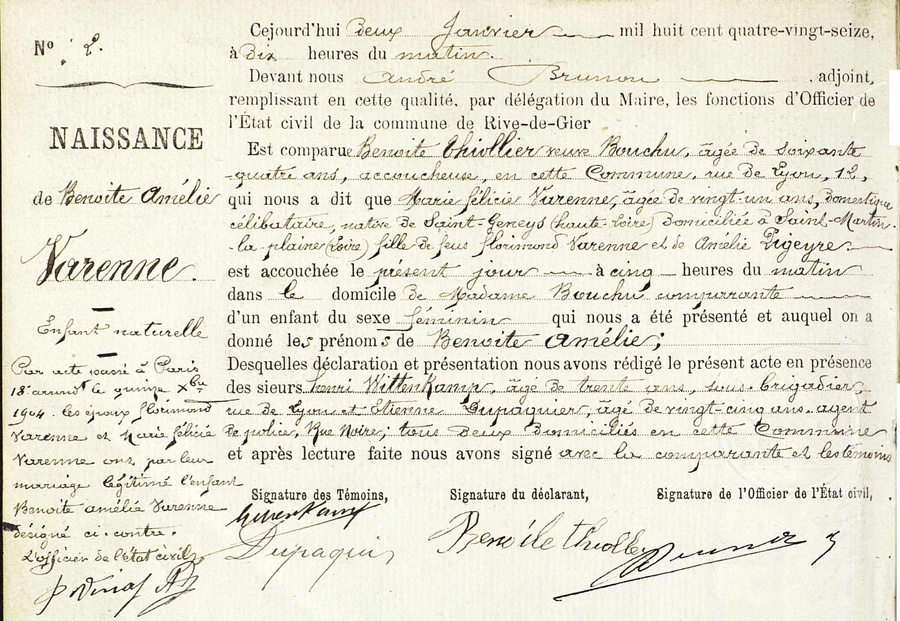 N° 2.
NAISSANCE
de Benoite Amélie
Varenne.
Enfant naturelle
Par acte passé à Paris
18e arrondt le quinze Xbre
1904. les époux florimond
Varenne et Marie félicie
Varenne ont, par leur
mariage légitimé l'enfant
Benoite amélie Varenne
désigné ci-contre.
L'officier de l'état civil,
Cejourd'hui deux Janvier mil huit cent quatre-vingt-seize,
à Dix heures du matin.
Devant nous André Brunon, adjoint,
remplissant en cette qualité, par délégation du Maire, les fonctions d'Officier de
l'État civil de la commune de Rive-de-Gier
Est comparue Benoite Thiollier veuve Bouchu, âgée de soixante
-quatre ans, accoucheuse, en cette Commune, rue de Lyon, 12,
qui nous a dit que Marie félicie Varenne, âgée de vingt-un ans, domestique
célibataire, native de Saint-Geneys (haute-Loire) domiciliée à Saint-Martin-
-la-plaine (Loire) fille de feus florimond Varenne et de Amélie Pigeyre
est accouchée le présent jour à cinq heures du matin
dans le domicile de Madame Bouchu comparante
d'un enfant du sexe féminin qui nous a été présenté et auquel on a
donné les prénoms de Benoite Amélie;
Desquelles déclaration et présentation nous avons rédigé le présent acte en présence
des sieurs henri Wittenkamp, âgé de trente ans, sous-brigadier,
rue de Lyon et Etienne Dupaquier, âgé de vingt-cinq ans, agent
de police, Rue Noire; tous deux domiciliés en cette Commune
et après lecture faite nous avons signé avec la comparante et les témoins
Signature des Témoins, Signature du déclarant, Signature de l'Officier de l'État civil,
Wittenkamp
Dupaquier
Benoite Thiollier
Brunon